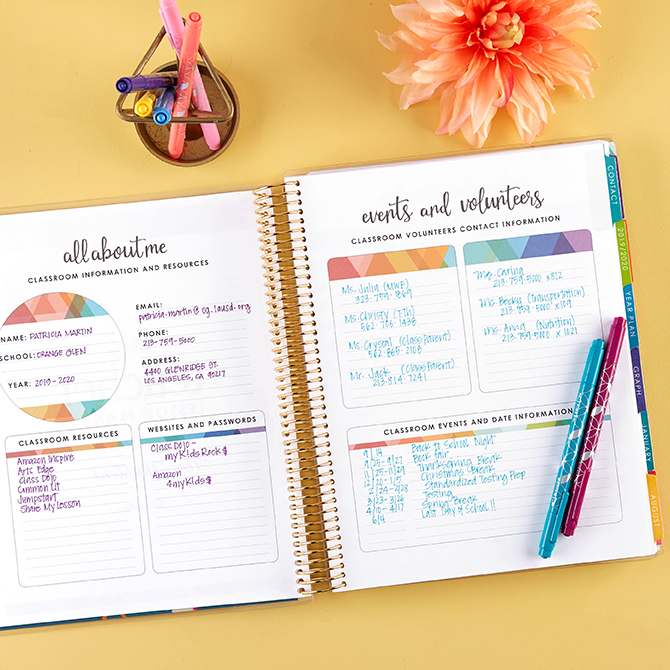 all about me
CLASSROOM INFORMATION AND RESOURCES
NAME: PATRICIA MARTIN
SCHOOL: ORANGE GLEN
YEAR: 2019-2020
EMAIL:
patricia-martin@cg.lausd.org
PHONE:
213-759-5000
ADDRESS:
4400 GLENRIDGE ST.
LOS ANGELES, CA 90217
CLASSROOM RESOURCES
Amazon Inspire
Arts Edge
Class Dojo
Common Lit
Jumpstart
Share My Lesson
WEBSITES AND PASSWORDS
Class Dojo -
myKidsRock$
Amazon
4myKids$
events and volunteers
CLASSROOM VOLUNTEERS CONTACT INFORMATION
Ms. Julia (MWF)
323-759-1869
Ms. Chrisey (TTh)
562-706-1438
Ms. Crystal (Class Parent)
562-865-2103
Mr. Jack (Class Parent)
213-814-7241
Mg. Carling
213-759-5000 x812
Ms. Becky (Transportation)
213-759-5000 x109
Ms. Anna (Nutrition)
213-759-5000 x1021
CLASSROOM EVENTS AND DATE INFORMATION
9/19 Back to School Night
10/25-9/27 Book Fair
11/25-11/29 Thanksgiving Break
12/20-1/3 Christmas Break
2/24-2/28 Standardized Testing Prep
3/23-3/26 Testing
4/10-4/17 Spring Break
6/4 Last Day of School!!
CONTACT
2019/2020
YEAR PLAN
GRAPH
JANUARY
AUGUST